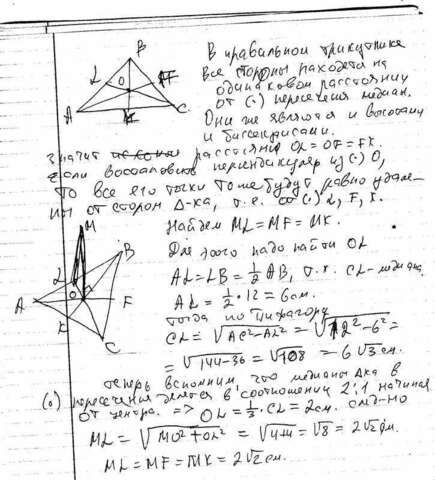 В правильном трикутнике
все стороны находятся на
одинаковом расстоянии
от (·) пересечения медиан.
Они же являются и высотами
и биссектрисами.
значит расстояние OL = OF = FK.
если восстановить перпендикуляр из (·) O,
то все его точки тоже будут равно удале-
ны от сторон Δ-ка, т.е. со (·) L, F, K.
Найдем ML = MF = MK.
Для этого надо найти OL
AL = LB = 1/2 AB, т.к. CL - медиана
AL = 1/2 · 12 = 6 см.
тогда по Пифагору
CL = √AC² - AL² = √12² - 6² =
= √144 - 36 = √108 = 6√3 см.
теперь вспомним, что медианы Δка в
(·) пересечения делятся в соотношении 2:1 начиная
от центра. => OL = 1/3 · CL = 2 см.
ML = √MO² + OL² = √4+4 = √8 = 2√2 см.
ML = MF = MK = 2√2 см.
B
L
O
A
C
M
B
L
O
A
F
K
C